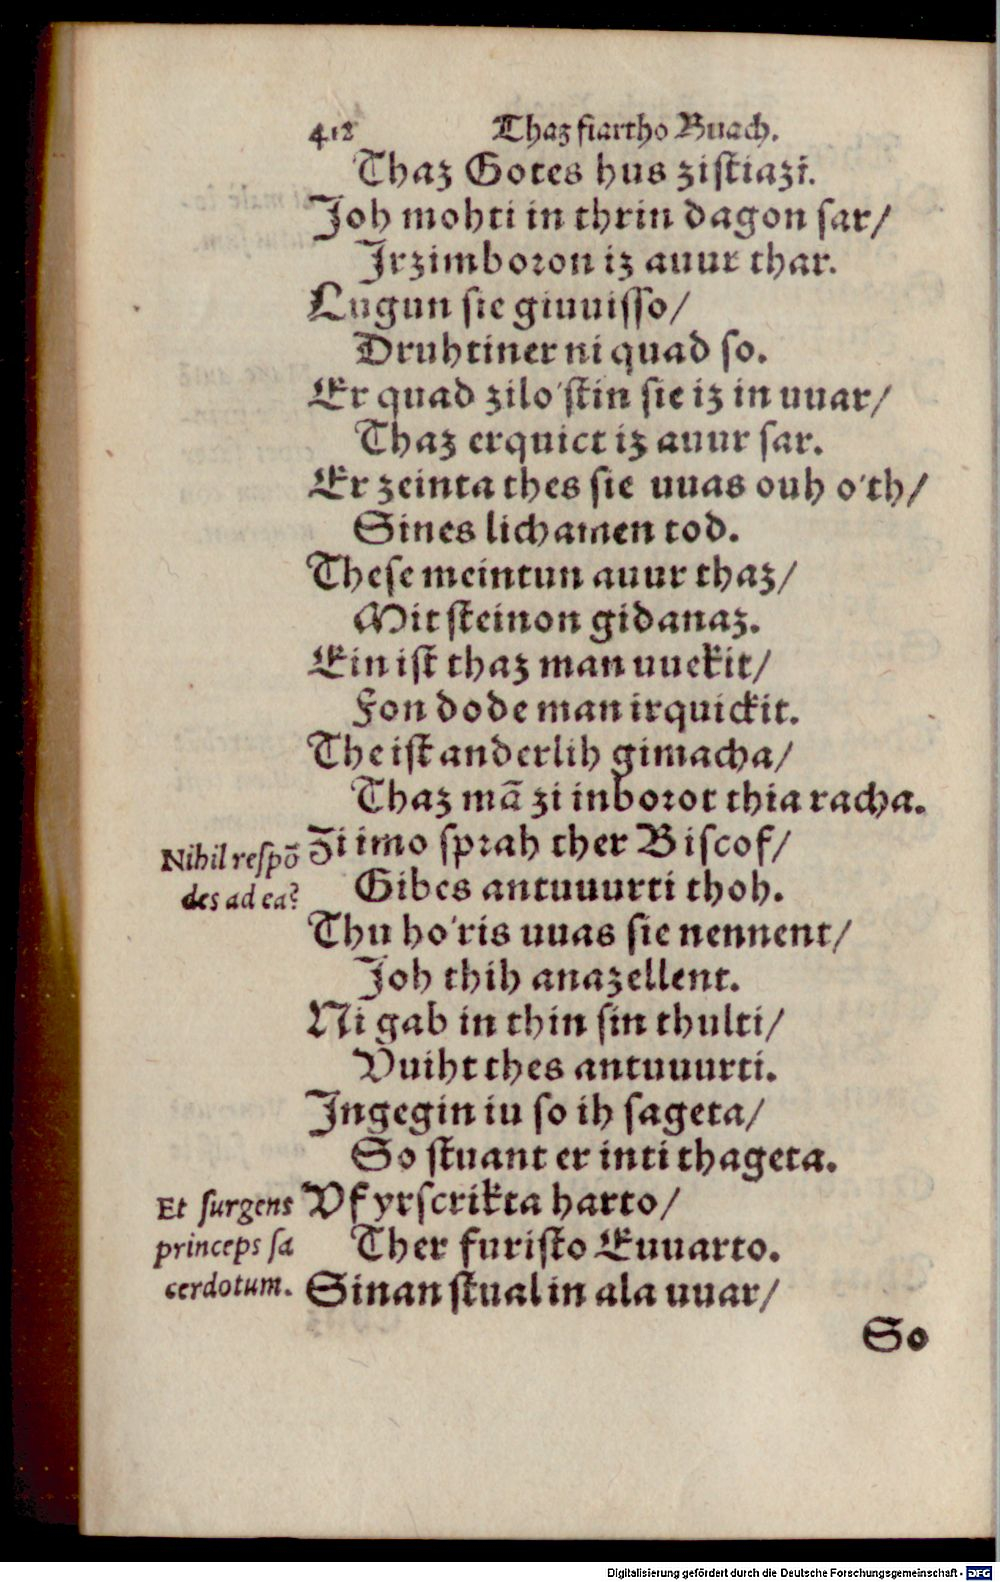 412 Thaz fiartho Buach.
Thaz Gotes hus zistiazi.
Joh mohti in thrin dagon sar/
Irzimboron iz auur thar.
Lugun sie giuuisso/
Druhtiner ni quad so.
Er quad zilo'stin sie iz in uuar/
Thaz erquict iz auur sar.
Er zeinta thes sie uuas ouh o'th/
Sines lichamen tod.
These meintun auur thaz/
Mit steinon gidanaz.
Ein ist thaz man uuekit/
Fon dode man irquickit.
The ist anderlih gimacha/
Thaz mā zi inborot thia racha.
Nihil respō
des ad ea?
Zi imo sprah ther Biscof/
Gibes antuuurti thoh.
Thu ho'ris uuas sie nennent/
Joh thih anazellent.
Ni gab in thin sin thulti/
Vuiht thes antuuurti.
Ingegin iu so ih sageta/
So stuant er inti thageta.
Et surgens
princeps sa
cerdotum.
Vf yrscrikta harto/
Ther furisto Euuarto.
Sinan stual in ala uuar/
So
Digitalisierung gefördert durch die Deutsche Forschungsgemeinschaft - DFG